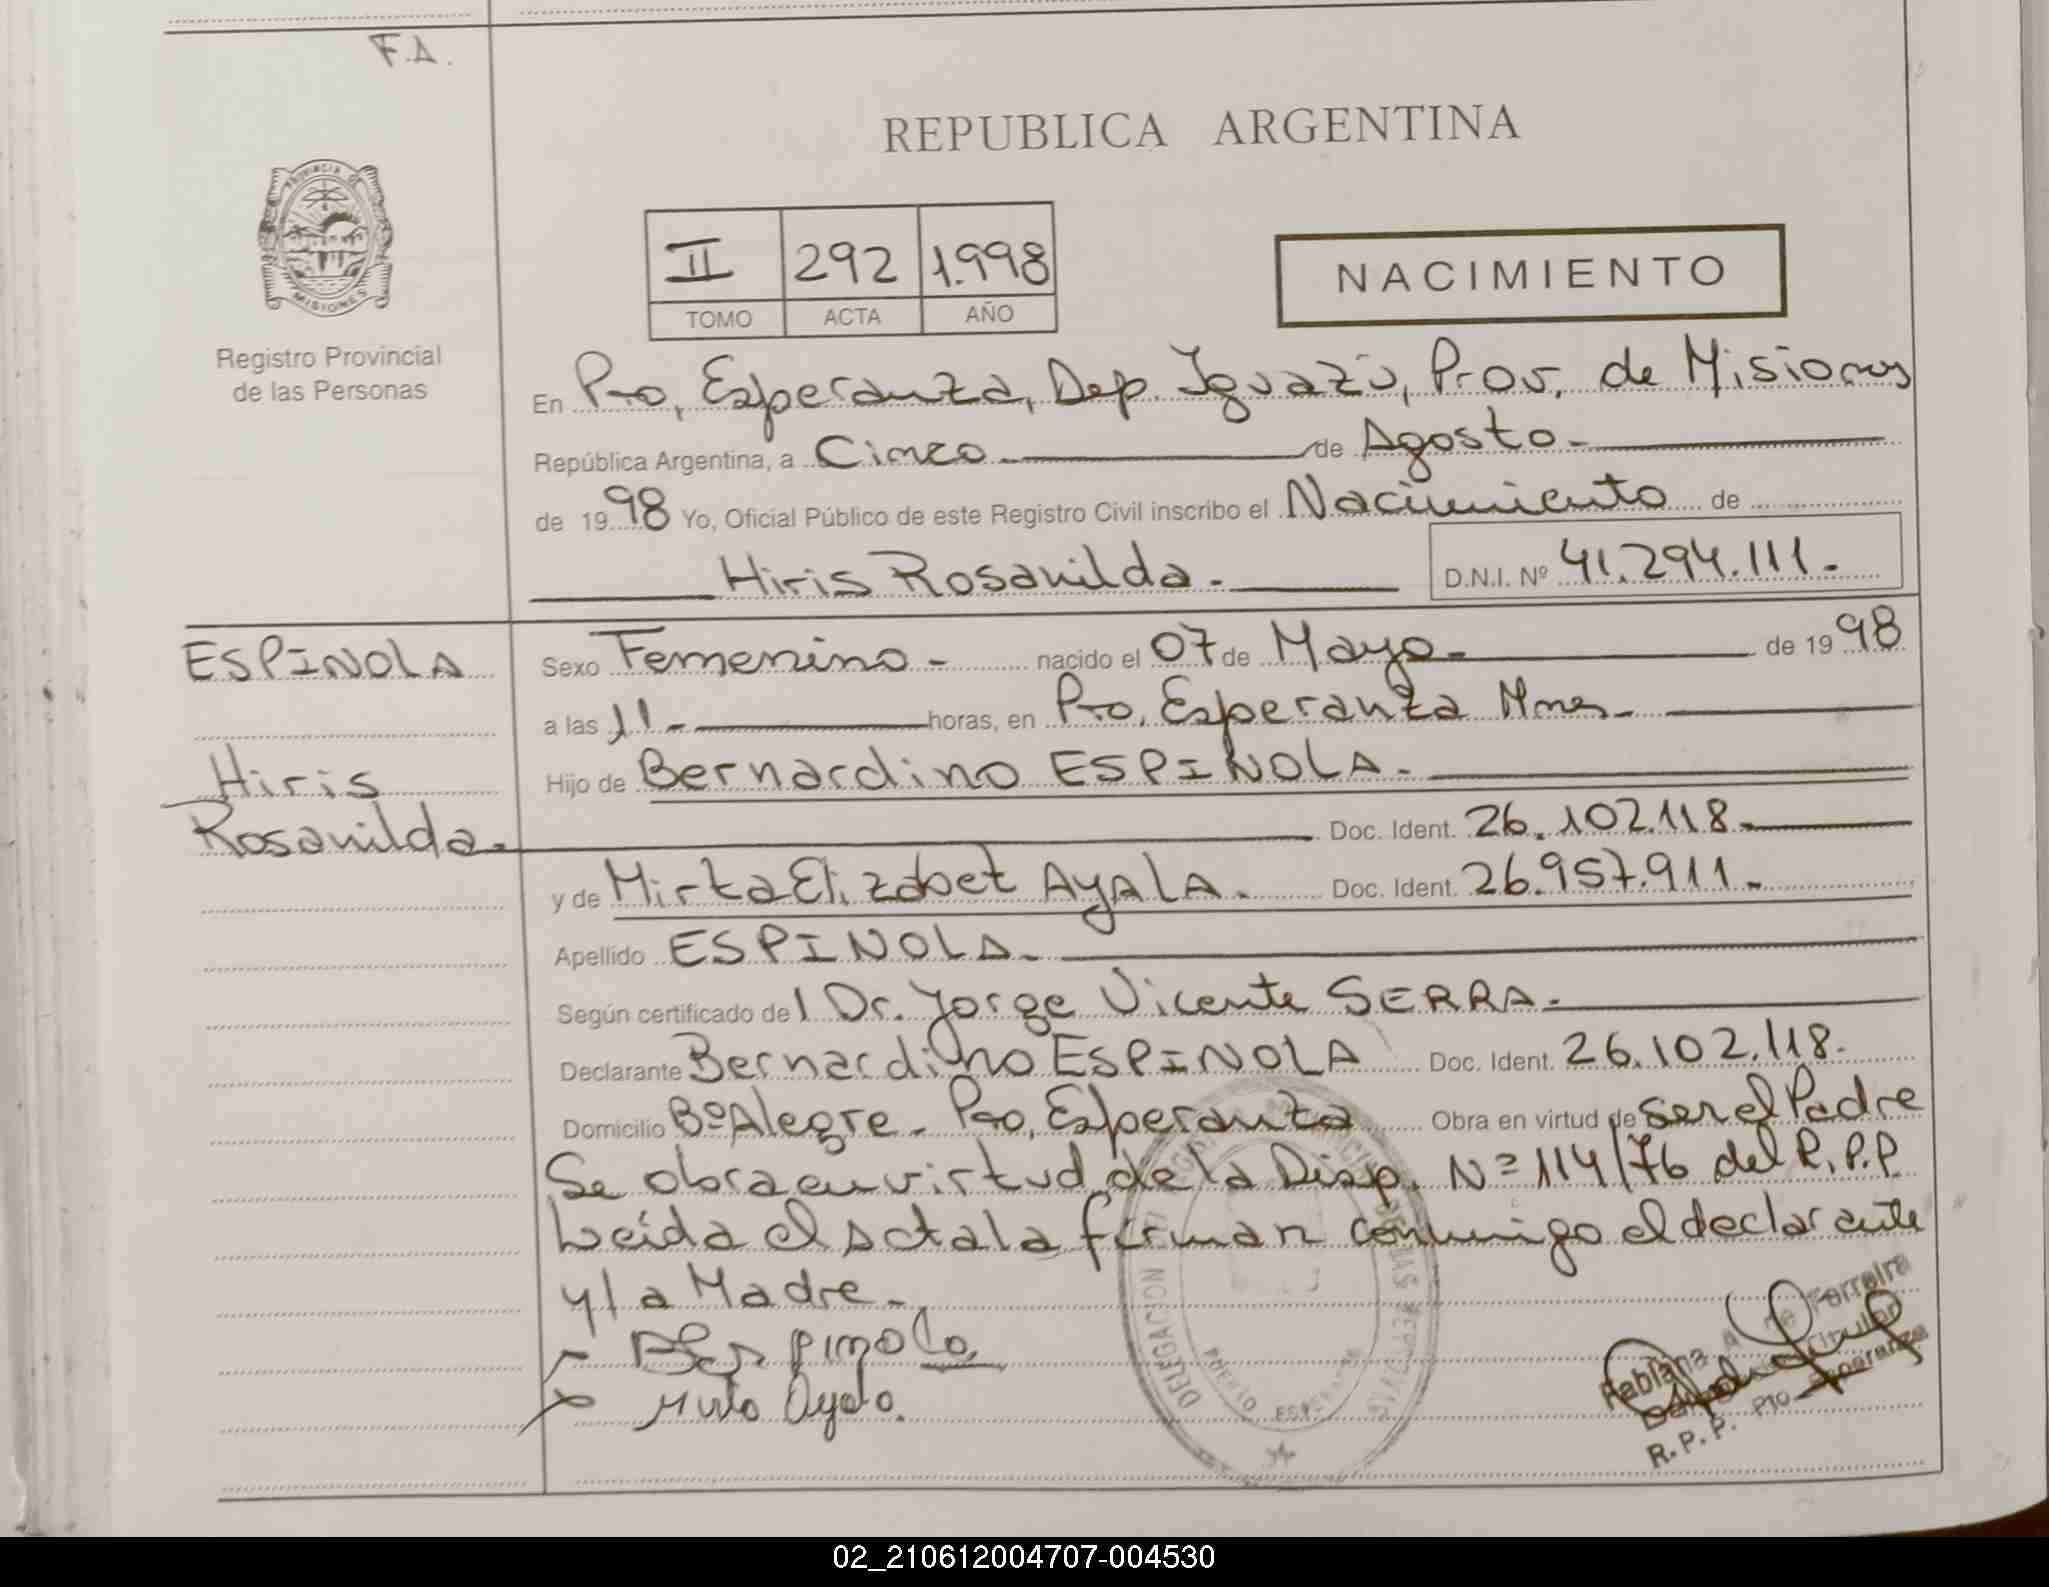 F.A.
REPUBLICA ARGENTINA
PROVINCIA DE
MISIONES
Registro Provincial
de las Personas
II 292 1.998
TOMO ACTA AÑO
NACIMIENTO
En Pto, Esperanza, Dep. Iguazú, Prov. de Misiones
República Argentina, a Cinco de Agosto.-
de 1998 Yo, Oficial Público de este Registro Civil inscribo el Nacimiento de
Hiris Rosanilda.- D.N.I. Nº 41.294.111.-
ESPINOLA
Hiris
Rosanilda.-
Sexo Femenino - nacido el 07 de Mayo - de 1998
a las 11 - horas, en Pto, Esperanza Mnes -
Hijo de Bernardino ESPINOLA.-
Doc. Ident. 26.102.118.-
y de Mirta Elizabet AyALA.- Doc. Ident. 26.957.911.-
Apellido ESPINOLA.-
Según certificado del Dr. Jorge Vicente SERRA.-
Declarante Bernardino ESPINOLA Doc. Ident. 26.102.118.
Domicilio BºAlegre - Pto, Esperanza Obra en virtud de ser el Padre
Se obra en virtud de la Disp. Nº 114/76 del R.P.P
Leída el acta la firman conmigo el declarante
y la Madre.-
Espinola
Mirta Ayala.
DELEGACION
PUERTO ESPERANZA
Ferreira
Titular
R.P.P. Pto Esperanza
02_210612004707-004530